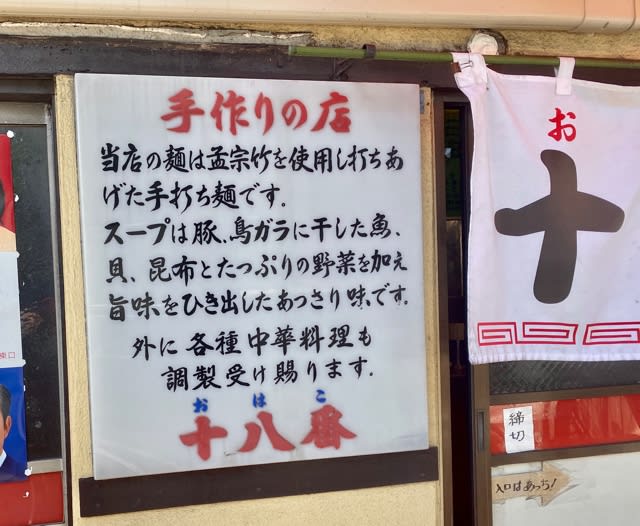 手作りの店
当店の麺は孟宗竹を使用し打ちあ
げた手打ち麺です.
スープは豚、鳥ガラに干した魚、
貝、昆布とたっぷりの野菜を加え
旨味をひき出したあっさり味です.
外に各種中華料理も
調製受け賜ります.
おはこ
十八番
お
十
締切
入口はあっち!
東口